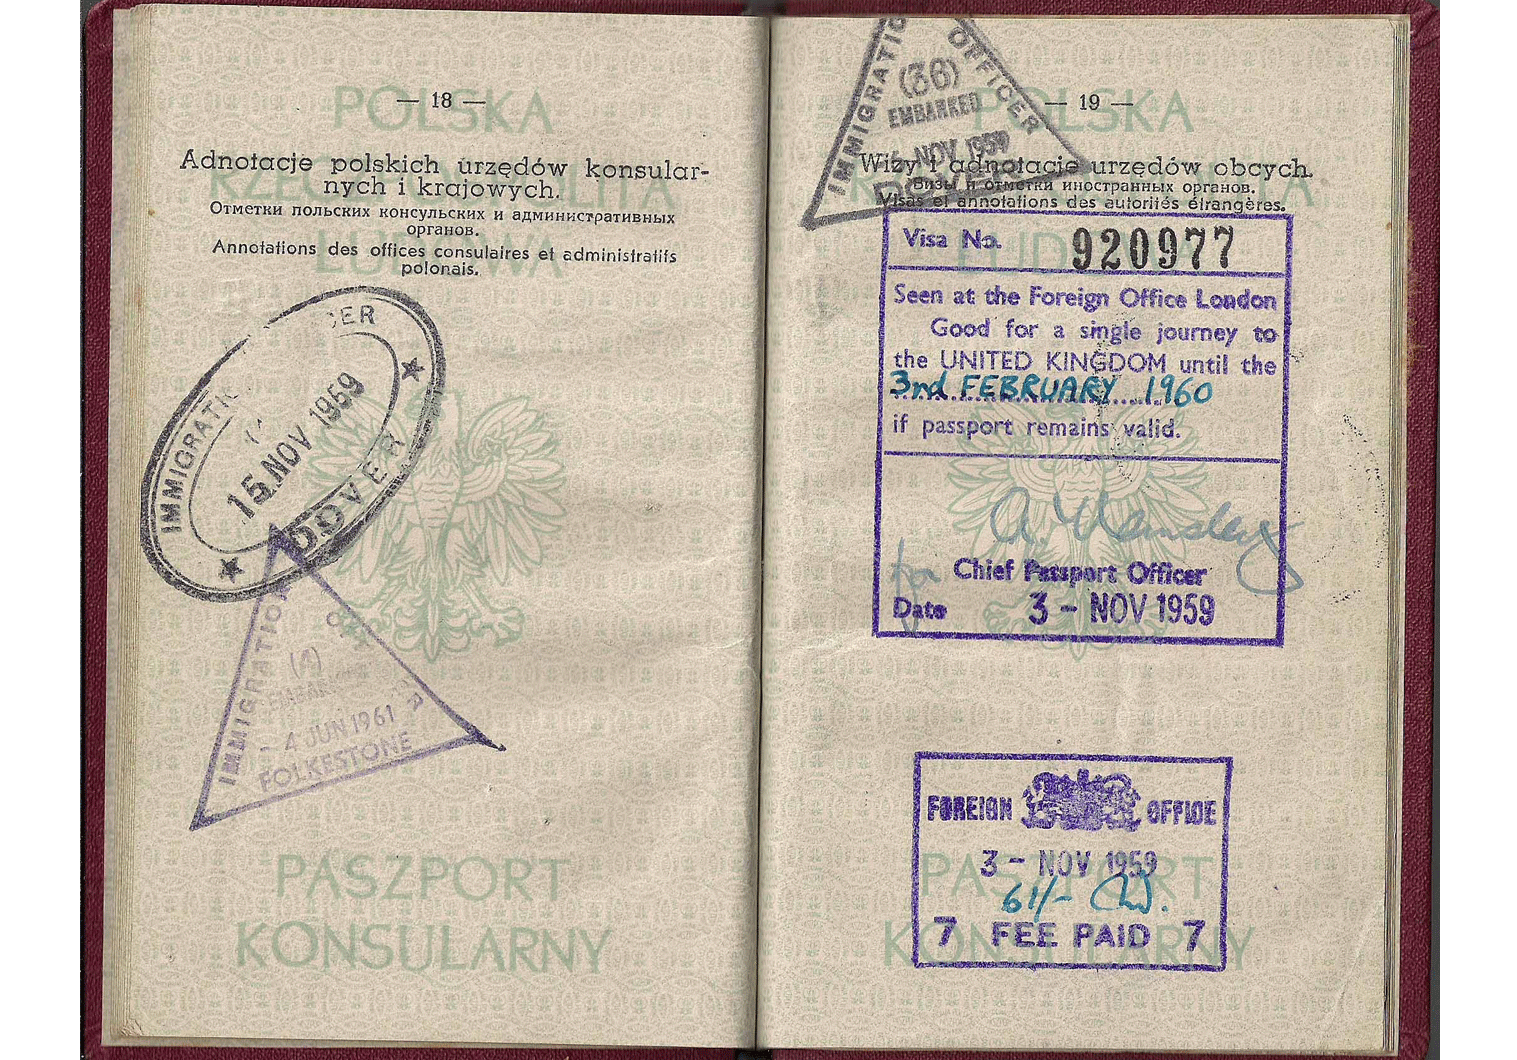 — 18 —
POLSKA
Adnotacje polskich urzędów konsular-
nych i krajowych.
RZECZPOSPOLITA
Отметки польских консульских и административных
органов.
LUDOWA
Annotations des offices consulaires et administratifs
polonais.
IMMIGRATION OFFICER
15 NOV 1959
★ DOVER ★
IMMIGRATION OFFICER
(4)
EMBARKED
- 4 JUN 1961
FOLKESTONE
PASZPORT
KONSULARNY
IMMIGRATION OFFICER
(36)
EMBARKED
NOV 1959
DOVER
— 19 —
POLSKA
Wizy i adnotacje urzędów obcych.
Визы и отметки иностранных органов.
Visas et annotations des autorités étrangères.
LUDOWA
Visa No. 920977
Seen at the Foreign Office London
Good for a single journey to
the UNITED KINGDOM until the
3rd FEBRUARY 1960
if passport remains valid.
for Chief Passport Officer
Date 3 - NOV 1959
FOREIGN OFFICE
3 - NOV 1959
61/-
7 FEE PAID 7
PASZPORT
KONSULARNY